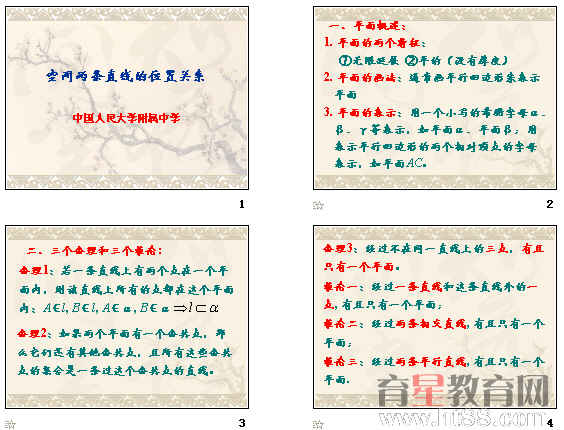 空间两条直线的位置关系
中国人民大学附属中学
1
一、平面概述：
1. 平面的两个特征：
①无限延展 ②平的（没有厚度）
2. 平面的画法：通常画平行四边形来表示
平面
3. 平面的表示：用一个小写的希腊字母α、
β、γ等表示，如平面α、平面β；用
表示平行四边形的两个相对顶点的字母
表示，如平面AC。
2
二、三个公理和三个推论：
公理1：若一条直线上有两个点在一个平
面内，则该直线上所有的点都在这个平面
内：A∈l, B∈l, A∈α, B∈α ⇒ l⊂α
公理2：如果两个平面有一个公共点，那
么它们还有其他公共点，且所有这些公共
点的集合是一条过这个公共点的直线。
3
公理3：经过不在同一直线上的三点，有且
只有一个平面。
推论一：经过一条直线和这条直线外的一
点，有且只有一个平面；
推论二：经过两条相交直线，有且只有一个
平面；
推论三：经过两条平行直线，有且只有一个
平面．
4
育星教育网
www.ht88.com